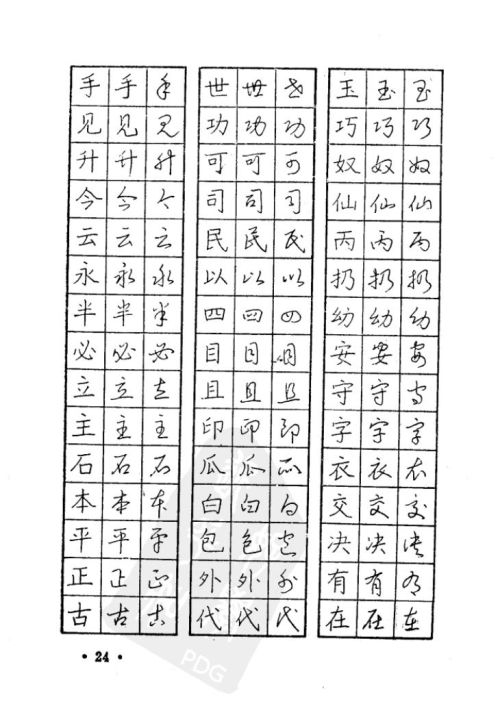 手 手 手 世 世 世 玉 玉 玉
见 见 见 功 功 功 巧 巧 巧
升 升 升 可 可 可 奴 奴 奴
今 今 今 司 司 司 仙 仙 仙
云 云 云 民 民 民 丙 丙 丙
永 永 永 以 以 以 扔 扔 扔
半 半 半 四 四 四 幼 幼 幼
必 必 必 目 目 目 安 安 安
立 立 立 且 且 且 守 守 守
主 主 主 印 印 印 字 字 字
石 石 石 瓜 瓜 瓜 衣 衣 衣
本 本 本 白 白 白 交 交 交
平 平 平 包 包 包 决 决 决
正 正 正 外 外 外 有 有 有
古 古 古 代 代 代 在 在 在
· 24 ·
PDG